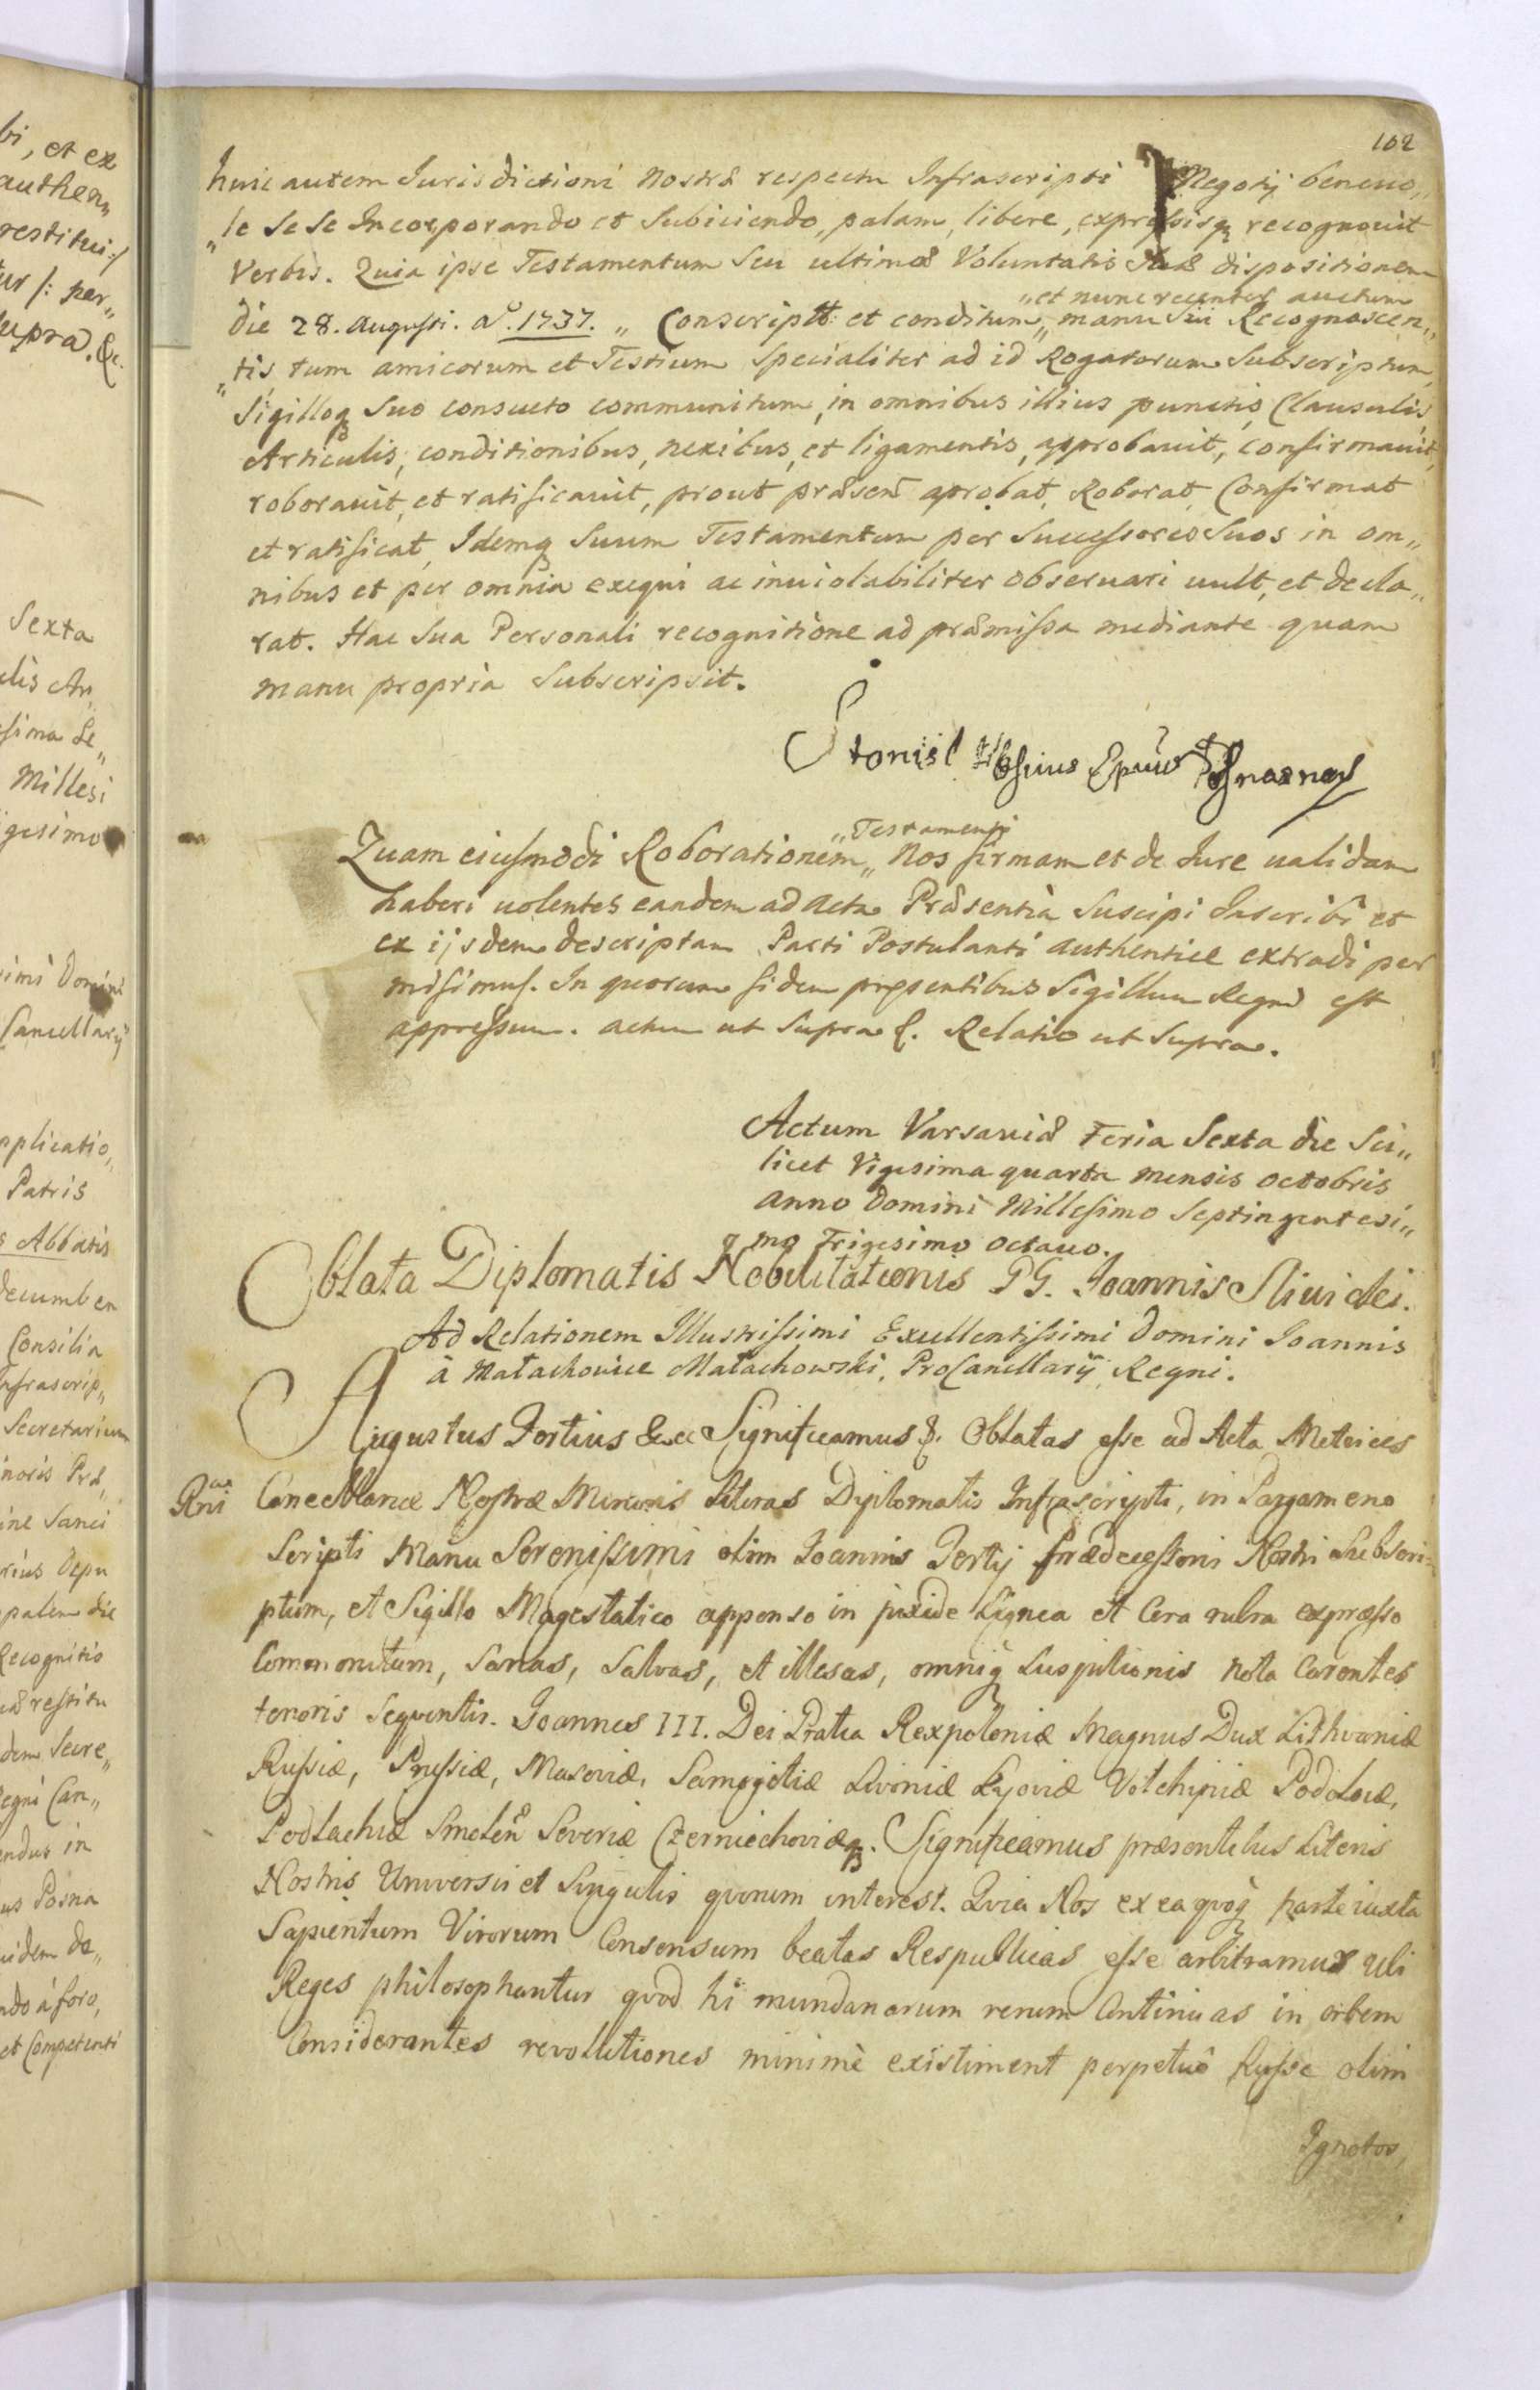 bi, et ex
authen„
restitui:/
tur /: per„
supra. &c.
Sexta
Millesi
gesimo
imi Domini
Cancellarij
pplicatio„
Patris
s Abbatis
decumben
Consilia
nfrascrip„
Secretarium
noris Præ„
ine Sanci
rius Depu
palem die
Recognitio
dem Secre„
egni Can„
endus in
us Posna
uidem de„
ndo á foro,
et Competenti
102
huic autem Jurisdictioni Nostræ respectu Infrascripti Negotij beneuo„
„le Se Se Incorporando et Subiiciendo, palam, libere, expressisq recognouit
Verbis. Quia ipse Testamentum Seu ultimæ Voluntatis Suæ dispositionem
„et nunc recenter auctum
die 28. augusti. aº. 1737. „ Conscriptt: et conditum„ manu Sui Recognoscen„
„tis, tum amicorum et Testium Specialiter ad id Rogatorum Subscriptum,
Sigilloq Suo consueto communitum, in omnibus illius punctis, Clausulis,
Articulis, conditionibus, nexibus, et ligamentis, approbauit, confirmauit,
roborauit, et ratificauit, prout præsen aprobat, Roborat, Confirmat
et ratificat, Idemq Suum Testamentum per Successores Suos in om„
nibus et per omnia exequi ac inuiolabiliter obseruari uult, et decla„
rat. Hac Sua Personali recognitione ad præmissa mediante quam
manu propria Subscripsit.
Stanisl Hosius Epūs
„Testamenti
Quam eiusmodi Roborationem„ Nos firmam et de Jure ualidam
haberi uolentes eandem ad acta Præsentia Suscipi Inscribi et
ex ijsdem descriptam Parti Postulanti authentice extradi per
misimus. In quorum fidem præsentibus Sigillum Regni est
appressum. actum ut Supra &. Relatio ut Supra.
Actum Varsauiæ Feria Sexta die Sci„
licet Vigesima quarta mensis octobris
anno Domini Millesimo Septingentesi„
mo Trigesimo octauo.
Oblata Diplomatis Nobilitationis PG. Joannis Sliuidei.
Ad Relationem Illustrissimi Excellentissimi Domini Joannis
á Małachowice Małachowski, ProCancellarij Regni.
Augustus Tertius &cc Significamus &. Oblatas esse ad Acta Metrices
Rni Cancellariæ Nostræ Minoris Literas Diplomatis Infrascripti, in Pargameno
Scripti Manu Serenissimi olim Joannis Tertij Prædecessoris Nostri Subscri=
ptum, et Sigillo Magestatico appenso in pixide Lignea et Cera rubra expresso
Commonitum, Sanas, Salvas, et illesas, omniq Suspitionis nota Carentes
tenoris Sequentis. Joannes III. Dei Gratia Rex poloniæ Magnus Dux Lithvaniæ
Russiæ, Prussiæ, Masoviæ, Samogitiæ Livoniæ Kyoviæ Volchiniæ Podoliæ,
Podlachiæ Smolen Severiæ Czerniechoviæq. Significamus præsentibus Literis
Nostris Universis et Singulis quorum interest. Qvia Nos ex ea qvoq parte iuxta
Sapientum Virorum Consensum beatas Respublicas esse arbitramur ubi
Reges philosophantur qvod hi mundanarum rerum Continuas in orbem
Considerantes revolutiones minimè existiment perpetuò fuisse olim
Ignotos